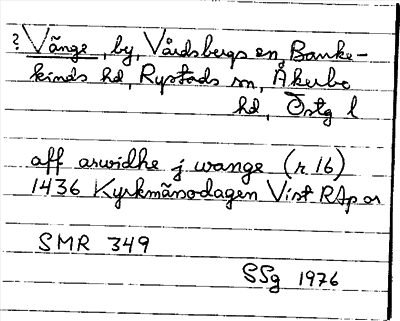 ? Vänge, by, Vårdsbergs sn, Banke-
kinds hd, Rystads sn, Åkerbo
hd, Östg l
aff arwidhe j wange (r 16)
1436 Kyrkmäsodagen Vist RAp or
SMR 349
SSg 1976